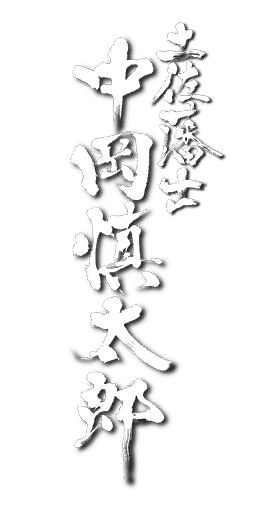 土佐藩士
中岡慎太郎